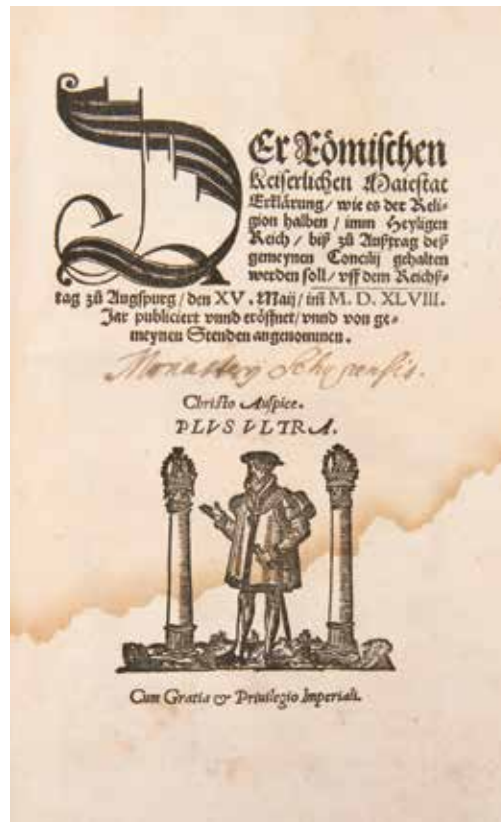 DEr Römischen
Keiserlichen Maiestat
Erklärung / wie es der Reli-
gion halben / imm Heyligen
Reich / biß zů Außtrag deß
gemeynen Concilij gehalten
werden soll / vff dem Reichß-
tag zů Augspurg / den XV. Maij / im M. D. XLVIII.
Jar publiciert vnnd eröffnet / vnnd von ge-
meynen Stenden angenommen.
Monasterij Schyrensis.
Christo Auspice.
PLVS VLTRA.
Cum Gratia & Priuilegio Imperiali.